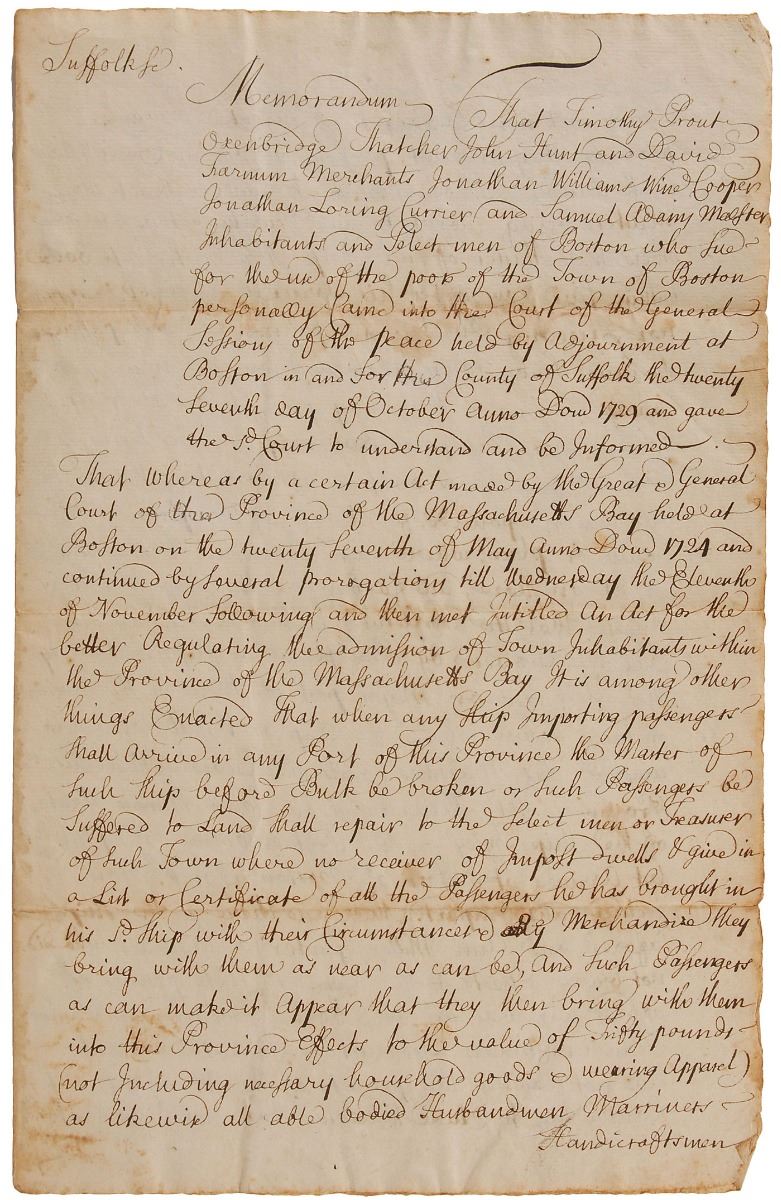 Suffolk sc.
Memorandum That Timothy Prout
Oxenbridge Thatcher John Hunt and David
Farnum Merchants Jonathan Williams Wine Cooper
Jonathan Loring Currier and Samuel Adams Malster
Inhabitants and Select men of Boston who sue
for the use of the poor of the Town of Boston
personally Came into the Court of the General
Sessions of the peace held by Adjournment at
Boston in and for the County of Suffolk the twenty
seventh day of October Anno Dom 1729 and gave
the sd. Court to understand and be Informed
That whereas by a certain Act made by the Great & General
Court of the Province of the Massachusetts Bay held at
Boston on the twenty seventh of May Anno Dom 1724 and
continued by several prorogations till Wednesday the Eleventh
of November following and then met Intitled An Act for the
better Regulating the admission of Town Inhabitants within
the Province of the Massachusetts Bay It is among other
things Enacted That when any ship Importing passengers
shall arrive in any Port of this Province the Master of
such ship before Bulk be broken or such Passengers be
suffered to Land shall repair to the Select men or Treasurer
of such Town where no receiver of Impost dwells & give in
a List or Certificate of all the Passengers he has brought in
his sd. ship with their Circumstances & Merchandize they
bring with them as near as can be, And such Passengers
as can make it Appear that they then bring with them
into this Province Effects to the value of Fifty pounds
(not Including necessary household goods & wearing Apparel)
as likewise all able bodied Husbandmen, Marriners
Handicraftsmen